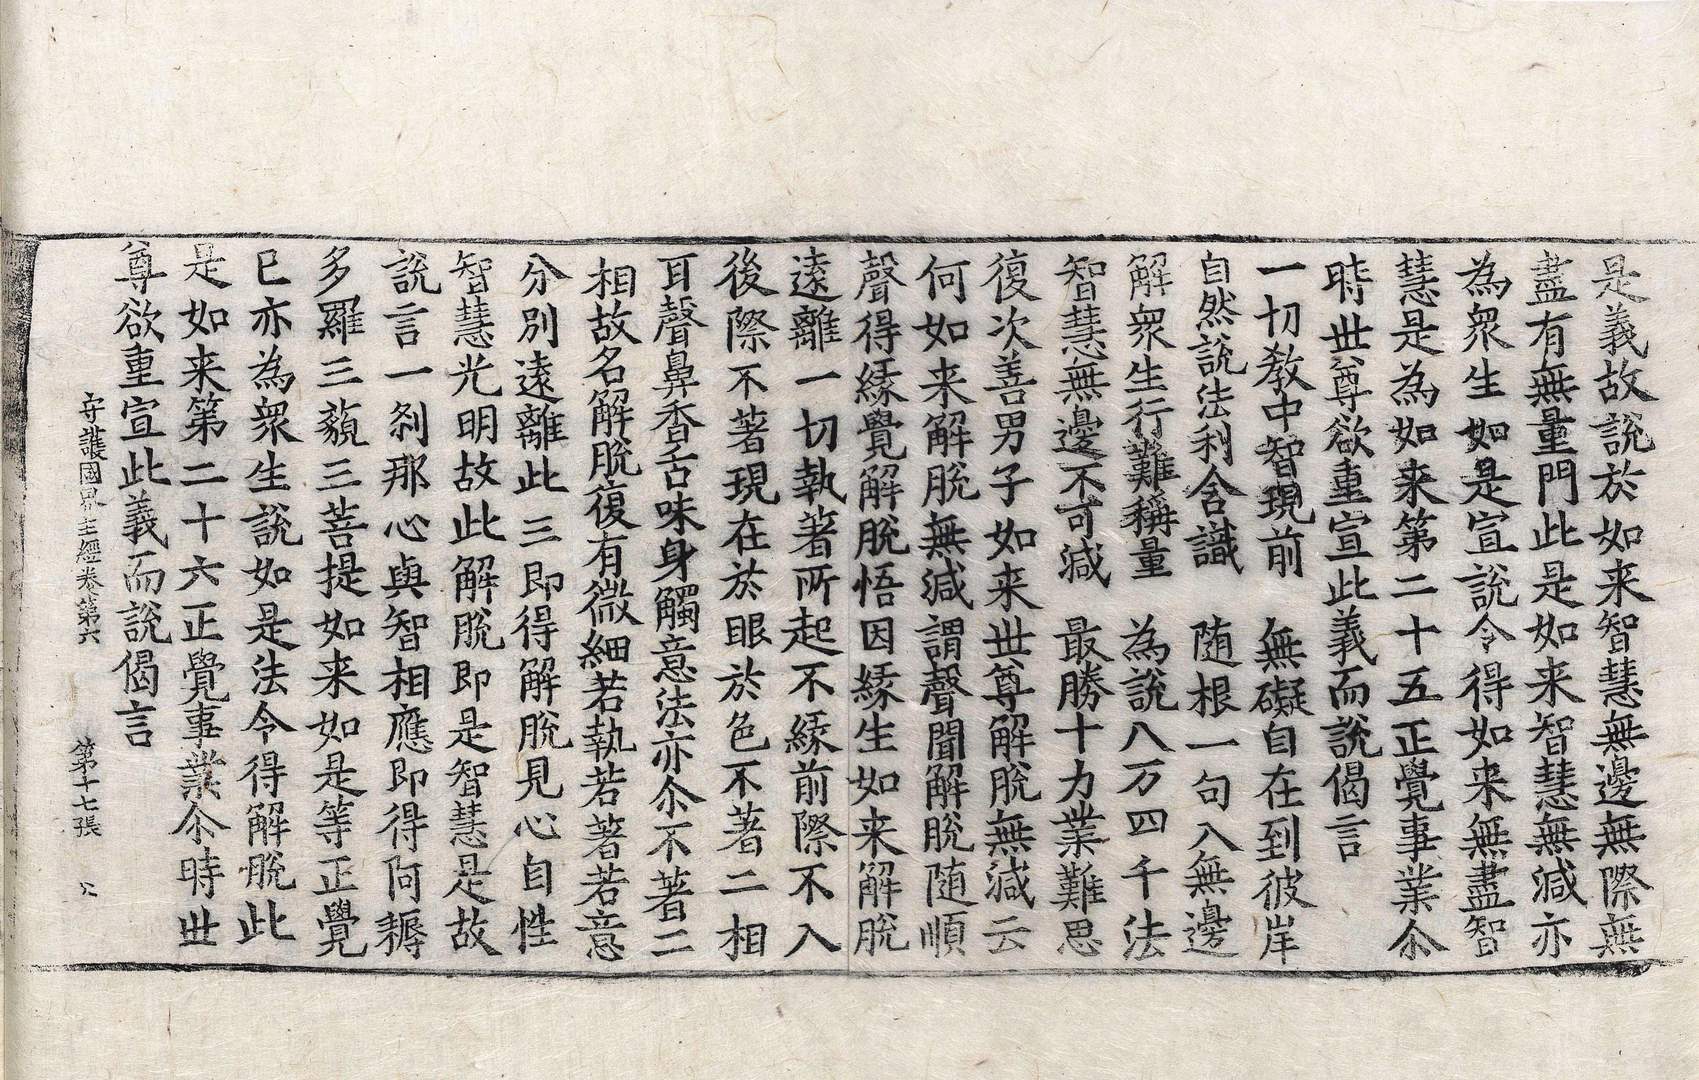 是義故說於如来智慧無邊無際無
盡有無量門此是如来智慧無減亦
為衆生如是宣說令得如来無盡智
慧是為如来第二十五正覺事業尒
時世尊欲重宣此義而說偈言
一切教中智現前　無礙自在到彼岸
自然說法利含識　随根一句入無邊
解衆生行難稱量　為說八万四千法
智慧無邊不可減　最勝十力業難思
復次善男子如来世尊解脫無減云
何如来解脫無減謂聲聞解脫随順
聲得縁覺解脫悟因縁生如来解脫
遠離一切執著所起不縁前際不入
後際不著現在於眼於色不著二相
耳聲鼻香舌味身觸意法亦尒不著二
相故名解脫復有微細若執若著若意
分別遠離此三即得解脫見心自性
智慧光明故此解脫即是智慧是故
說言一刹那心與智相應即得阿耨
多羅三藐三菩提如来如是等正覺
已亦為衆生說如是法令得解脫此
是如来第二十六正覺事業尒時世
尊欲重宣此義而說偈言
守護國界主經卷第六　第十七張